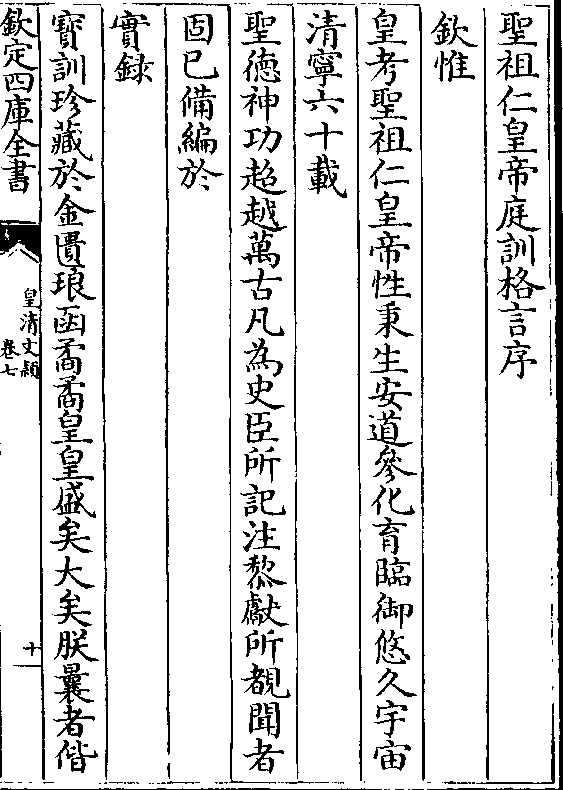 聖祖仁皇帝庭訓格言序
欽惟
皇考聖祖仁皇帝性秉生安道參化育臨御悠久宇宙
清寧六十載
聖德神功超越萬古凡為史臣所記注黎獻所覩聞者
固已備編於
實録
寶訓珍藏於金匱琅函矞矞皇皇盛矣大矣朕曩者偕
欽定四庫全書
皇清文穎
卷七
十